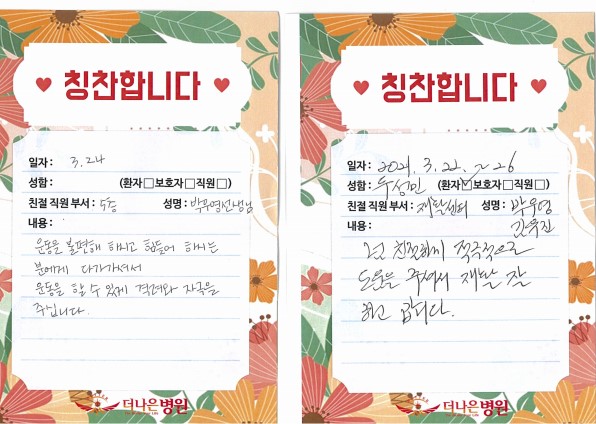 칭찬합니다
일자 : 3.24
성함 : (환자□보호자□직원□)
친절 직원 부서 : 5층 성명 : 박무영선생님
내용 :
운동을 불편해 하시고 힘들어 하시는
분에게 다가가셔서
운동을 할 수 있게 격려와 자극을
주십니다.
더나은병원
칭찬합니다
일자 : 2021. 3. 22. ~ 26
성함 : (환자☑보호자□직원□)
친절 직원 부서 : 재활센터 성명 : 박무영
내용 :
친절하게 적극적으로
도움을 주셔서 재활 잘
하고 갑니다.
더나은병원